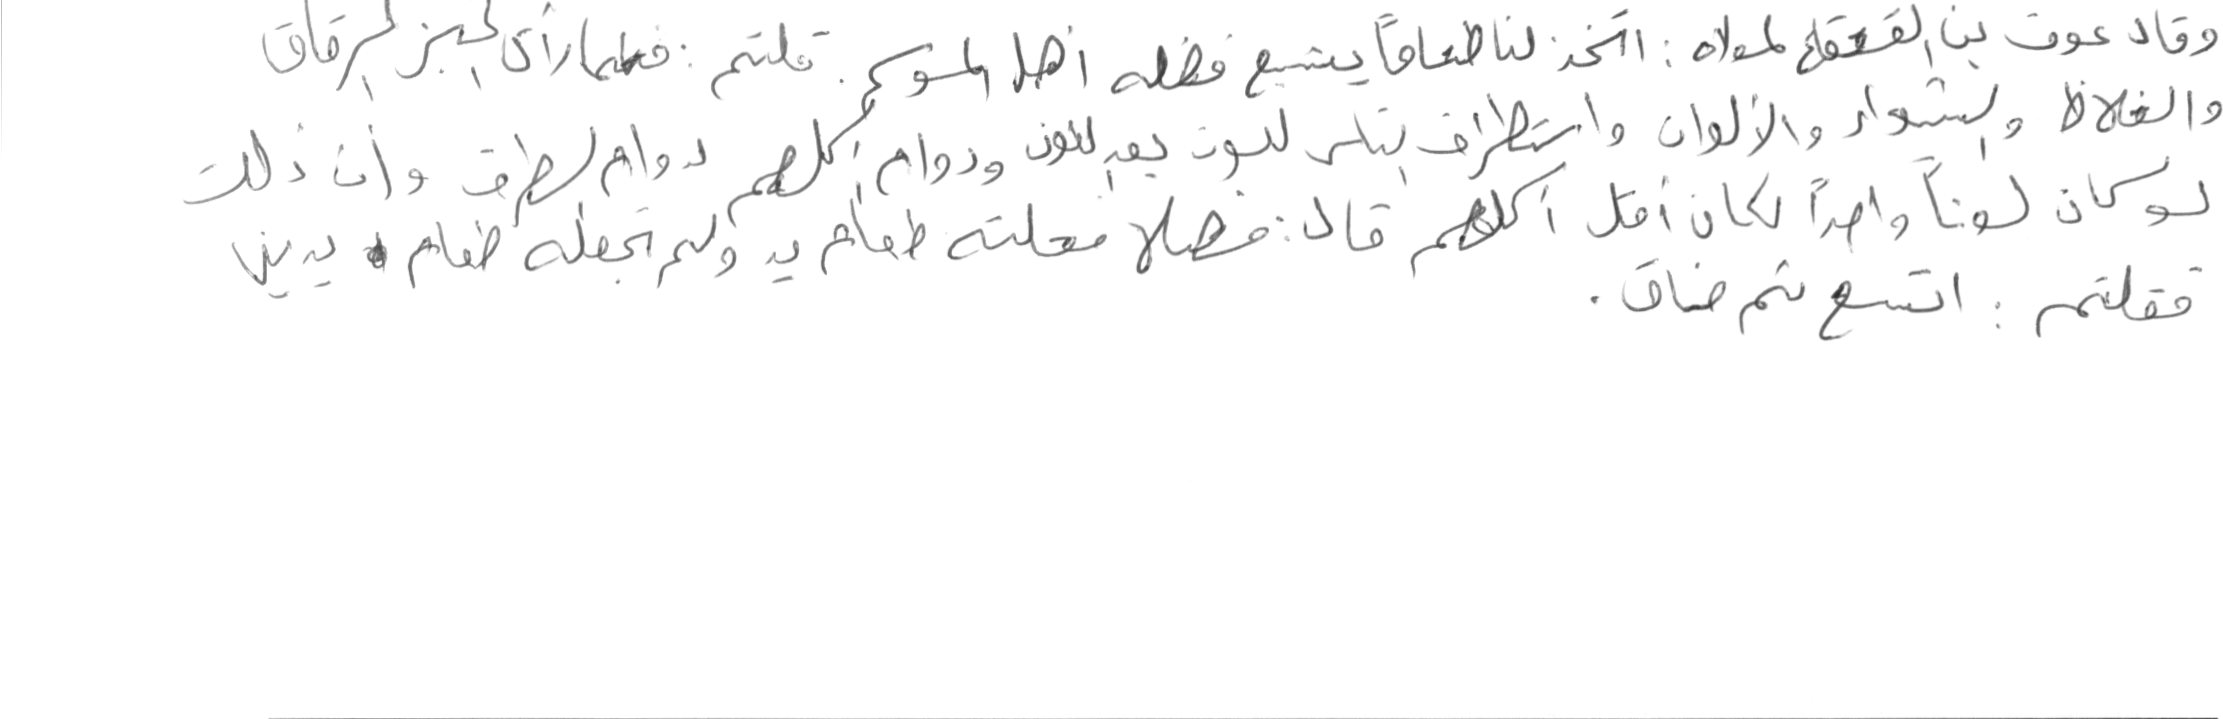 وقال عوف بن القعقاع لمولاه : اتخذ لنا طعاماً يشبع فضله أهل الموسم . قلتم : فلما رأى الخبز الرقاق
والغلاظ والشواء والألوان واستطراف الناس للون بعد اللون ودوام أكلهم لدوام الطرف وأن ذلك
لو كان لوناً واحداً لكان أقل أكلهم قال : فهلا فعلته طعام يد ولم تجعله طعام يدين
فقلتم : اتسع ثم ضاق .